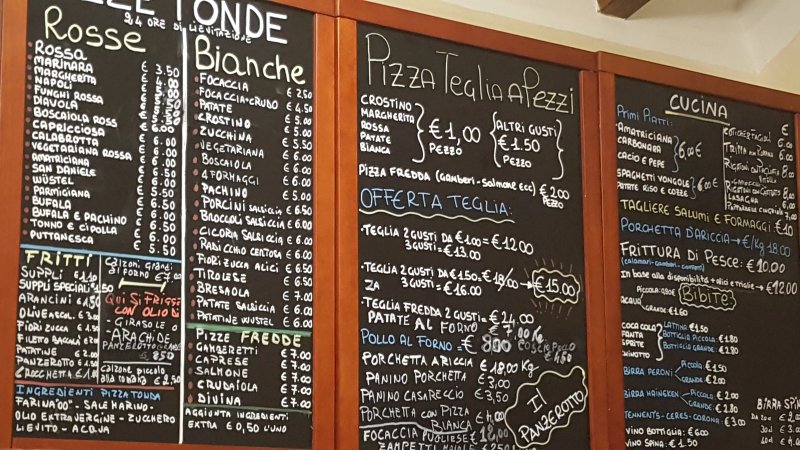 ZZE TONDE
24 ORE DI LIEVITAZIONE
Rosse
ROSSA € 3.50
MARINARA
MARGHERITA
NAPOLI
FUNGHI ROSSA
DIAVOLA
BOSCAIOLA ROSS
CAPRICCIOSA € 6.00
CALABROTTA € 6.00
VEGETARIANA ROSSA € 6.00
AMATRICIANA € 6.00
SAN DANIELE € 6.00
WÜSTEL
PARMIGIANA
BUFALA € 6.00
BUFALA E PACHINO € 6.00
TONNO E CIPOLLA € 6.00
PUTTANESCA € 5.50
FRITTI
SUPPLI € 1.10
SUPPLI SPECIALI 1.50
ARANCINI
OLIVE ASCOL.
FIORI ZUCCA
FILETTO BACCALÀ
PATATINE € 2.00
PANZEROTTO
CROCCHETTA
Calzoni Grandi
al forno € 7.00
QUI SI FRIGGE
CON OLIO DI
- GIRASOLE O
ARACHIDE
PANZEROTTO
Calzone piccolo
alla romana € 2.50
INGREDIENTI PIZZA TONDA
FARINA "00" - SALE MARINO -
OLIO EXTRAVERGINE - ZUCCHERO
LIEVITO - ACQUA
Bianche
FOCACCIA € 2.50
FOCACCIA+CRUDO € 4.50
PATATE € 5.00
CROSTINO € 5.00
ZUCCHINA € 5.50
VEGETARIANA € 6.00
BOSCAIOLA € 6.00
4 FORMAGGI € 6.00
PACHINO € 5.00
PORCINI SALSICCIA € 6.50
BROCCOLI SALSICCIA € 6.00
CICORIA SALSICCIA € 6.00
RADICCHIO CENTOSA € 6.00
FIORI ZUCCA ALICI € 6.50
TIROLESE € 6.50
BRESAOLA € 7.00
PATATE SALSICCIA € 6.00
PATATINE WUSTEL € 6.00
PIZZE FREDDE
GAMBERETTI € 7.00
CAPRESE € 7.00
SALMONE € 7.00
CRUDAIOLA € 7.00
DIVINA € 7.00
AGGIUNTA INGREDIENTI
EXTRA € 0,50 L'UNO
PIZZA TEGLIA A PEZZI
CROSTINO
MARGHERITA
ROSSA
PATATE
BIANCA
€ 1,00
PEZZO
ALTRI GUSTI
€ 1.50
PEZZO
PIZZA FREDDA (Gamberi - Salmone ecc) € 2.00
PEZZO
OFFERTA TEGLIA:
-TEGLIA 2 GUSTI DA € 1.00 = € 12.00
3 GUSTI = € 13.00
-TEGLIA 2 GUSTI DA € 1.50 = € 18,00 → € 15.00
ZA 3 GUSTI = € 16.00
-TEGLIA FREDDA 2 GUSTI = € 24,00
PATATE AL FORNO = € 7,00 Kg
POLLO AL FORNO = € 8,00 COSCE POLLO € 4.50
PORCHETTA ARICCIA € 18,00 Kg
PANINO PORCHETTA € 3,00
PANINO CASARECCIO € 3,50
PORCHETTA CON PIZZA
BIANCA € 4,00
FOCACCIA PUGLIESE € 12,00
ZAMPETTI
IL
PANZEROTTO
CUCINA
Primi Piatti:
AMATRICIANA
CARBONARA
CACIO E PEPE
6,00 €
SPAGHETTI VONGOLE
PATATE RISO E COZZE
€ 6.00
€
COTICHE FAGIOLI 6.00
6.00
LASAGNA
TAGLIERE SALUMI E FORMAGGI: € 10
PORCHETTA D'ARICCIA → €/Kg 18.00
FRITTURA DI PESCE: € 10,00
(calamari - gamberi - )
In base alla disponibilità + alici e triglie → € 12.00
BIBITE
ACQUA
Piccola: 0,90€
GRANDE € 1.60
COCA COLA
FANTA
SPRITE
CHINOTTO
LATTINA € 1.50
BOTTIGLIA PICCOLA: € 1.80
BOTTIGLIA GRANDE: € 2.80
BIRRA PERONI
PICCOLA: € 1.50
GRANDE: € 2.00
BIRRA HAINEKEN
PICCOLA: € 2.00
GRANDE: € 2.80
TENNENT'S - CERES - CORONA: € 3.00
VINO BOTTIGLIA: € 6.00
VINO SPINA: € 1.50
BIRRA SPIN